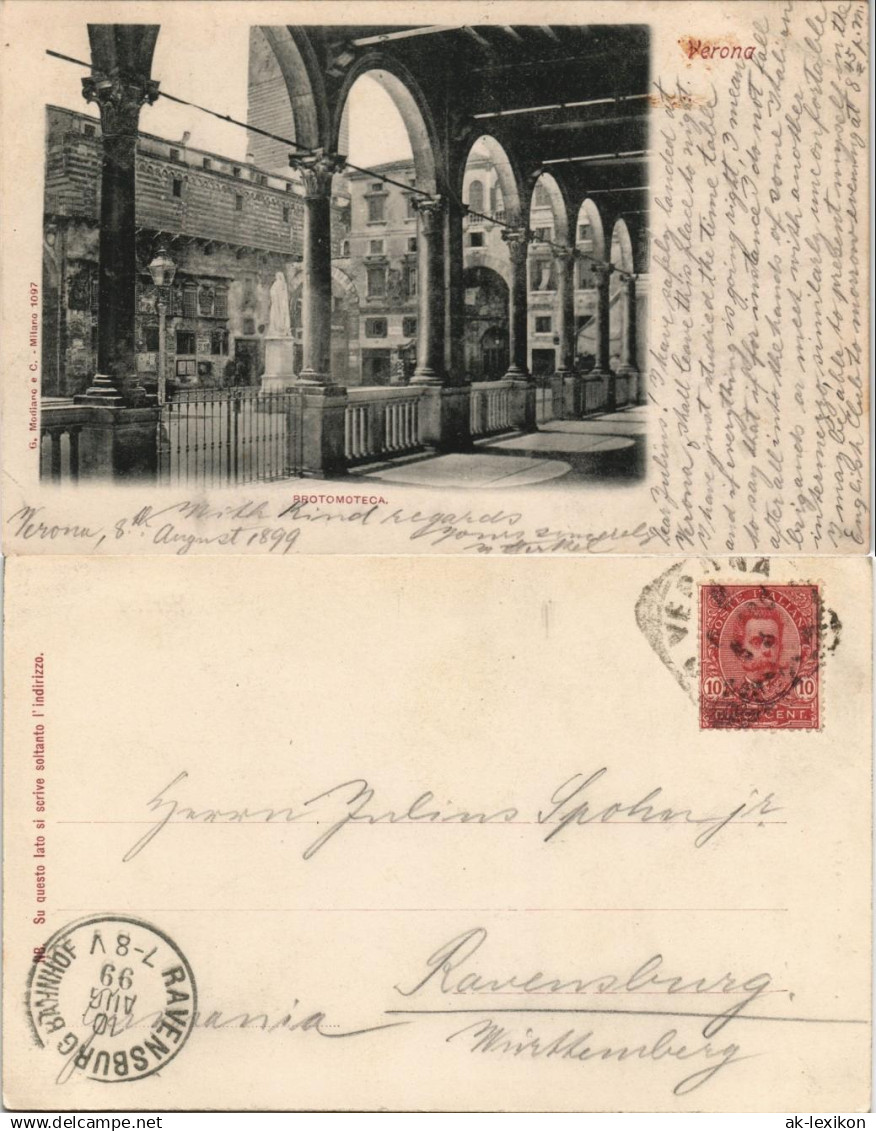 Verona
G. Modiano e C. - Milano 1097
PROTOMOTECA.
Verona, 8th August 1899
With kind regards
Yours sincerely
Dear Julius! I have safely landed at
Verona & shall leave this place to night.
I have just studied the time table
and if everything is going right, I mean
to say that if for instance I do not fall
after all into the hands of some Italian
brigands or meet with another
intermezzo similarly uncomfortable
I may be able to present myself in the
English Club to morrow evening at 8 45 p.m.
NB. Su questo lato si scrive soltanto l'indirizzo.
VERONA
POSTE ITALIANE
10 10
CENT.
Herrn Julius Spohn jr.
Ravensburg
Germania
Württemberg
RAVENSBURG BAHNHOF
10
AUG
99
7-8 V
ak-lexikon Delcampe.net